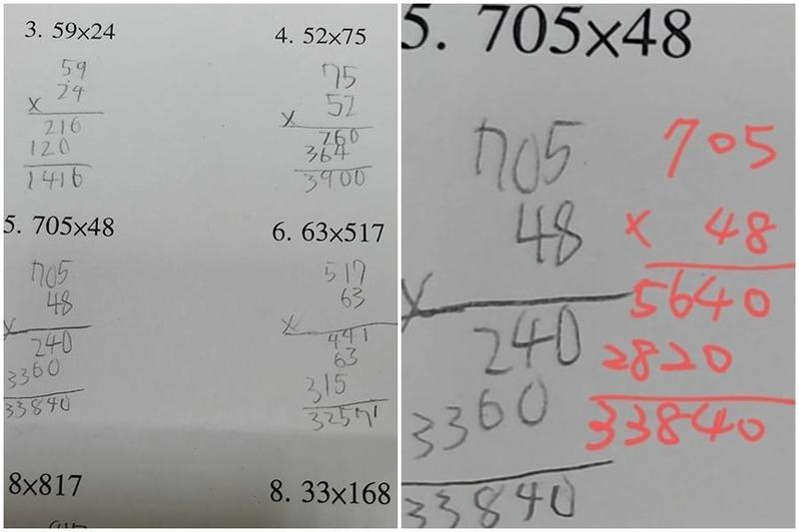 3. 59×24
59
× 24
216
120
1416
4. 52×75
75
× 52
260
364
3900
5. 705×48
705
48
×
240
3360
33840
6. 63×517
517
63
×
441
63
315
32571
8×817
8. 33×168
5. 705×48
705
48
×
240
3360
33840
705
× 48
5640
2820
33840